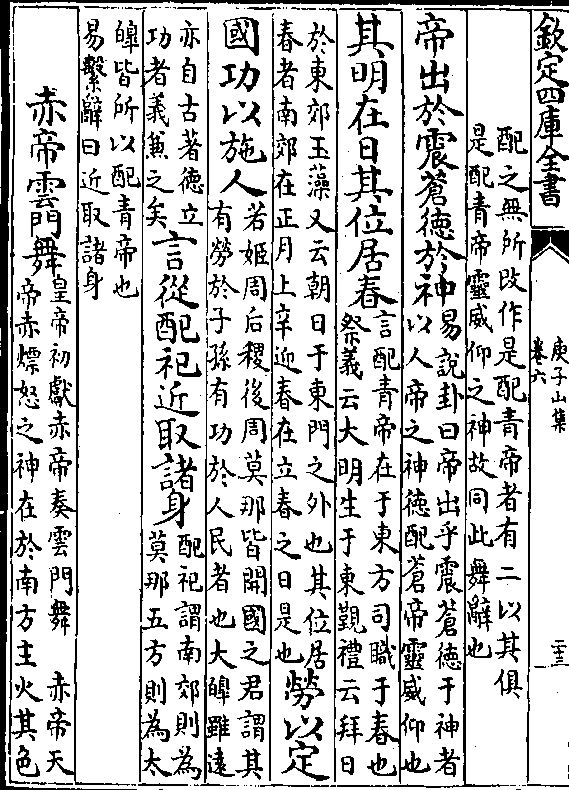 欽定四庫全書
庾子山集
卷六
二十三
配之無所改作是配青帝者有二以其俱
是配青帝靈威仰之神故同此舞辭也
帝出於震蒼德於神
易說卦曰帝出乎震蒼德于神者
以人帝之神德配蒼帝靈威仰也
其明在日其位居春
言配青帝在于東方司職于春也
祭義云大明生于東覲禮云拜日
於東郊玉藻又云朝日于東門之外也其位居
春者南郊在正月上辛迎春在立春之日是也
勞以定
國功以施人
若姬周后稷後周莫那皆開國之君謂其
有勞於子孫有功於人民者也大皥雖遠
亦自古著德立
功者義兼之矣
言從配祀近取諸身
配祀謂南郊則為
莫那五方則為太
皥皆所以配青帝也
易繫辭曰近取諸身
赤帝雲門舞
皇帝初獻赤帝奏雲門舞 赤帝天
帝赤熛怒之神在於南方主火其色